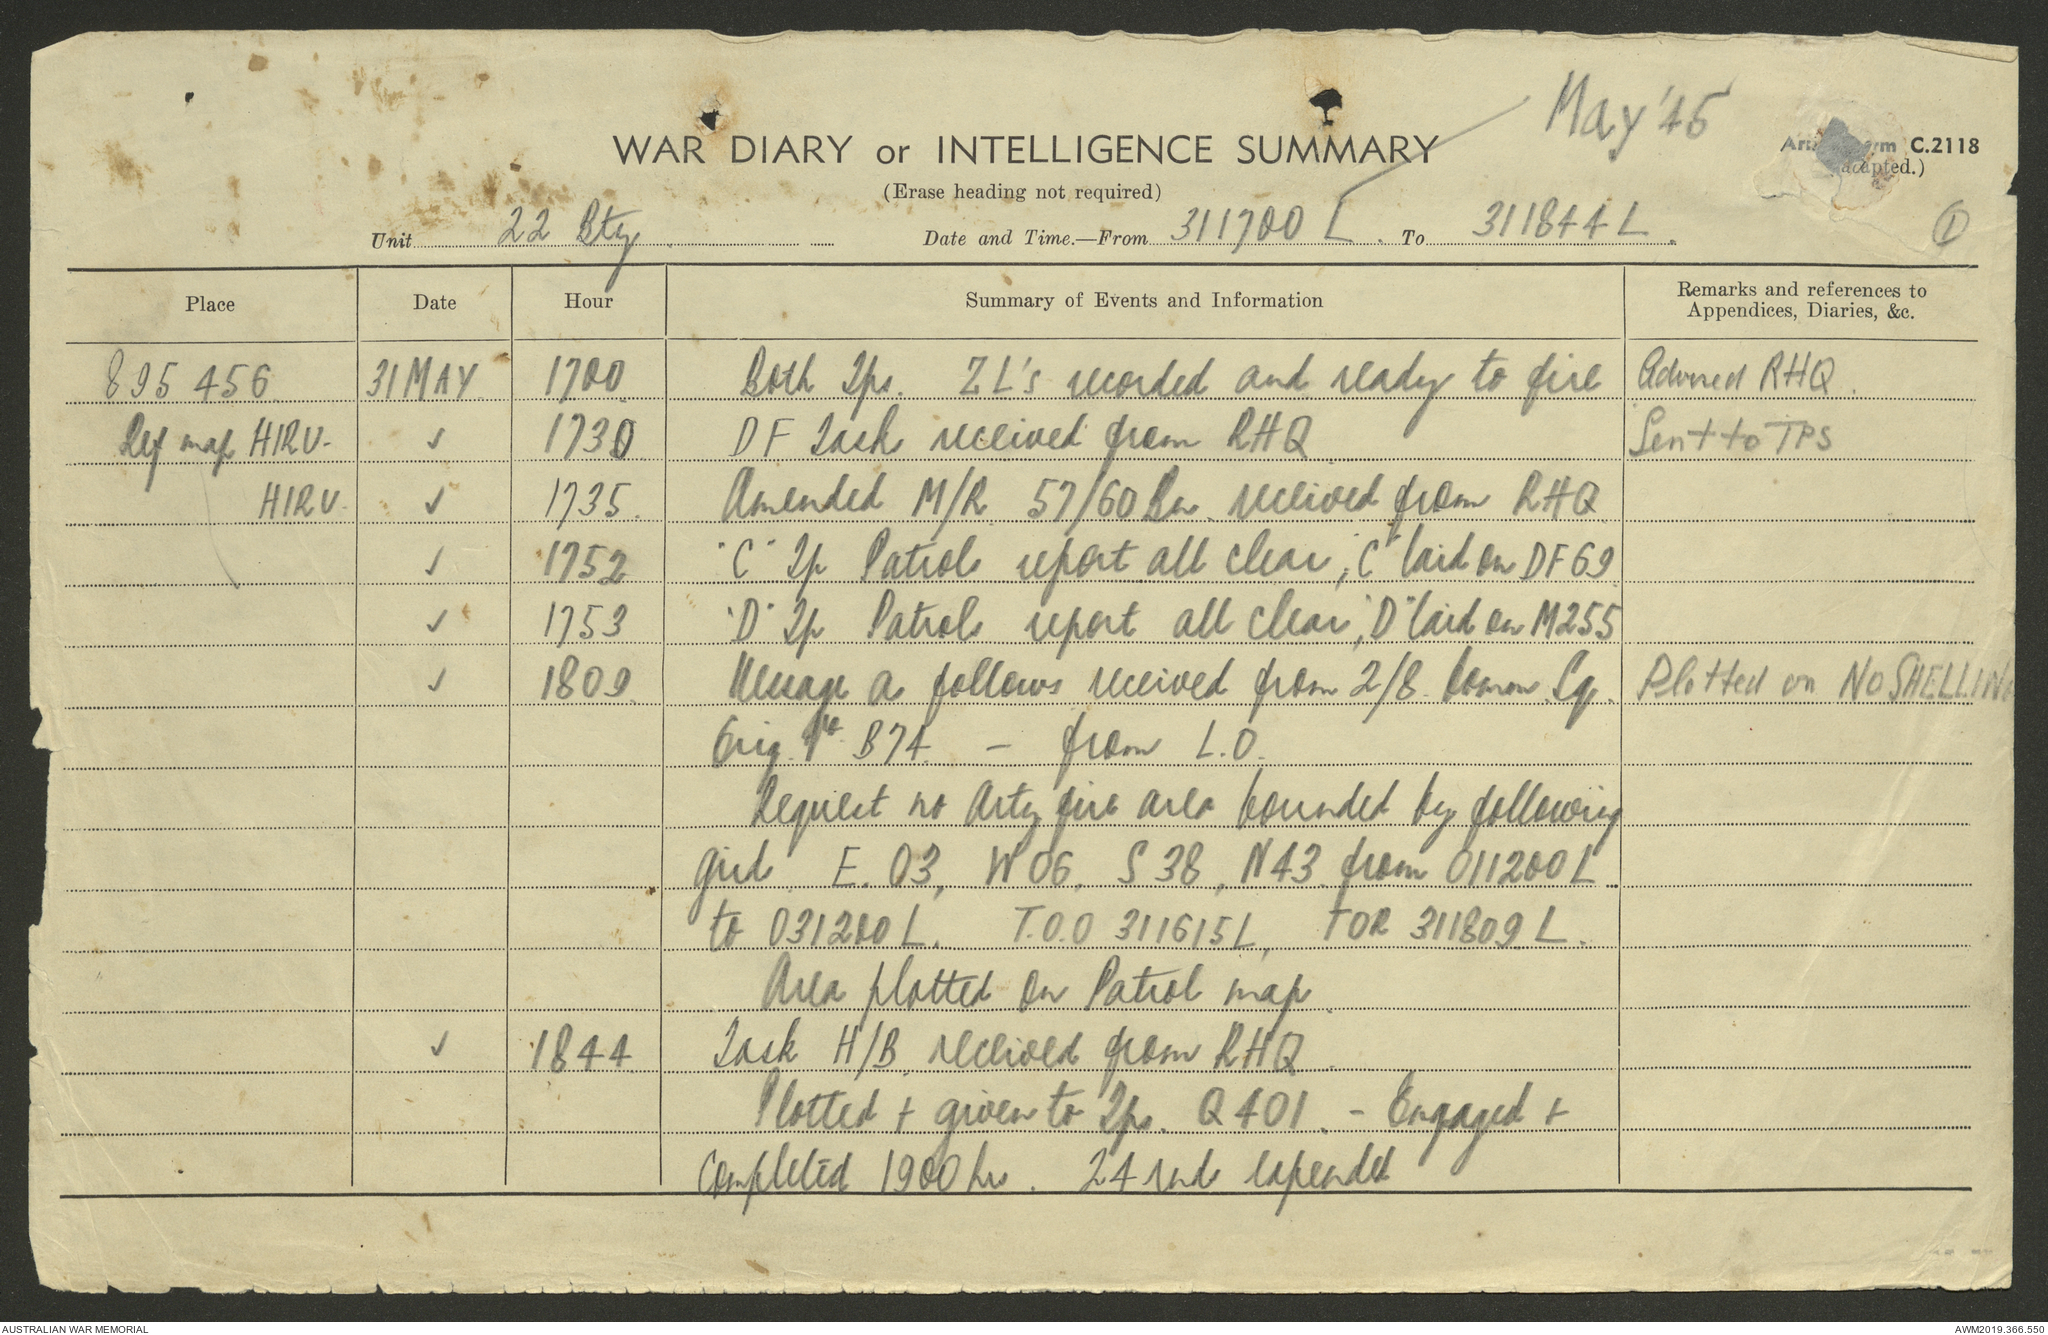 May '45
WAR DIARY or INTELLIGENCE SUMMARY
Army Form C.2118
(adapted.)
(Erase heading not required)
Unit 22 Bty Date and Time.—From 311700 L. To 311844 L. 1
Place Date Hour Summary of Events and Information Remarks and references to Appendices, Diaries, &c.
895 456 31 MAY 1700 Both Tps. ZL's recorded and ready to fire Advised RHQ.
Ref map HIRU- ✓ 1730 DF Tasks received from RHQ Sent to TPS
HIRU. ✓ 1735. Amended M/R 57/60 Bn. received from RHQ
✓ 1752 "C" Tp Patrols report all clear, "C" laid on DF 69
✓ 1753 "D" Tp Patrols report all clear, "D" laid on M255
✓ 1809 Message as follows received from 2/8 Comm. Sq. Plotted on NO SHELLING
Orig. Nr B74. – from L.O.
Request no Arty fire area bounded by following
grid. E. 03, W 06, S 38, N 43 from 011200 L
to 031200 L. T.O.O 311615 L, TOR 311809 L.
Area plotted on Patrol map.
✓ 1844 Task H/B received from RHQ.
Plotted + given to Tps. Q 401. – Engaged +
Completed 1900 hrs. 24 rnds expended
AUSTRALIAN WAR MEMORIAL AWM2019.366.550